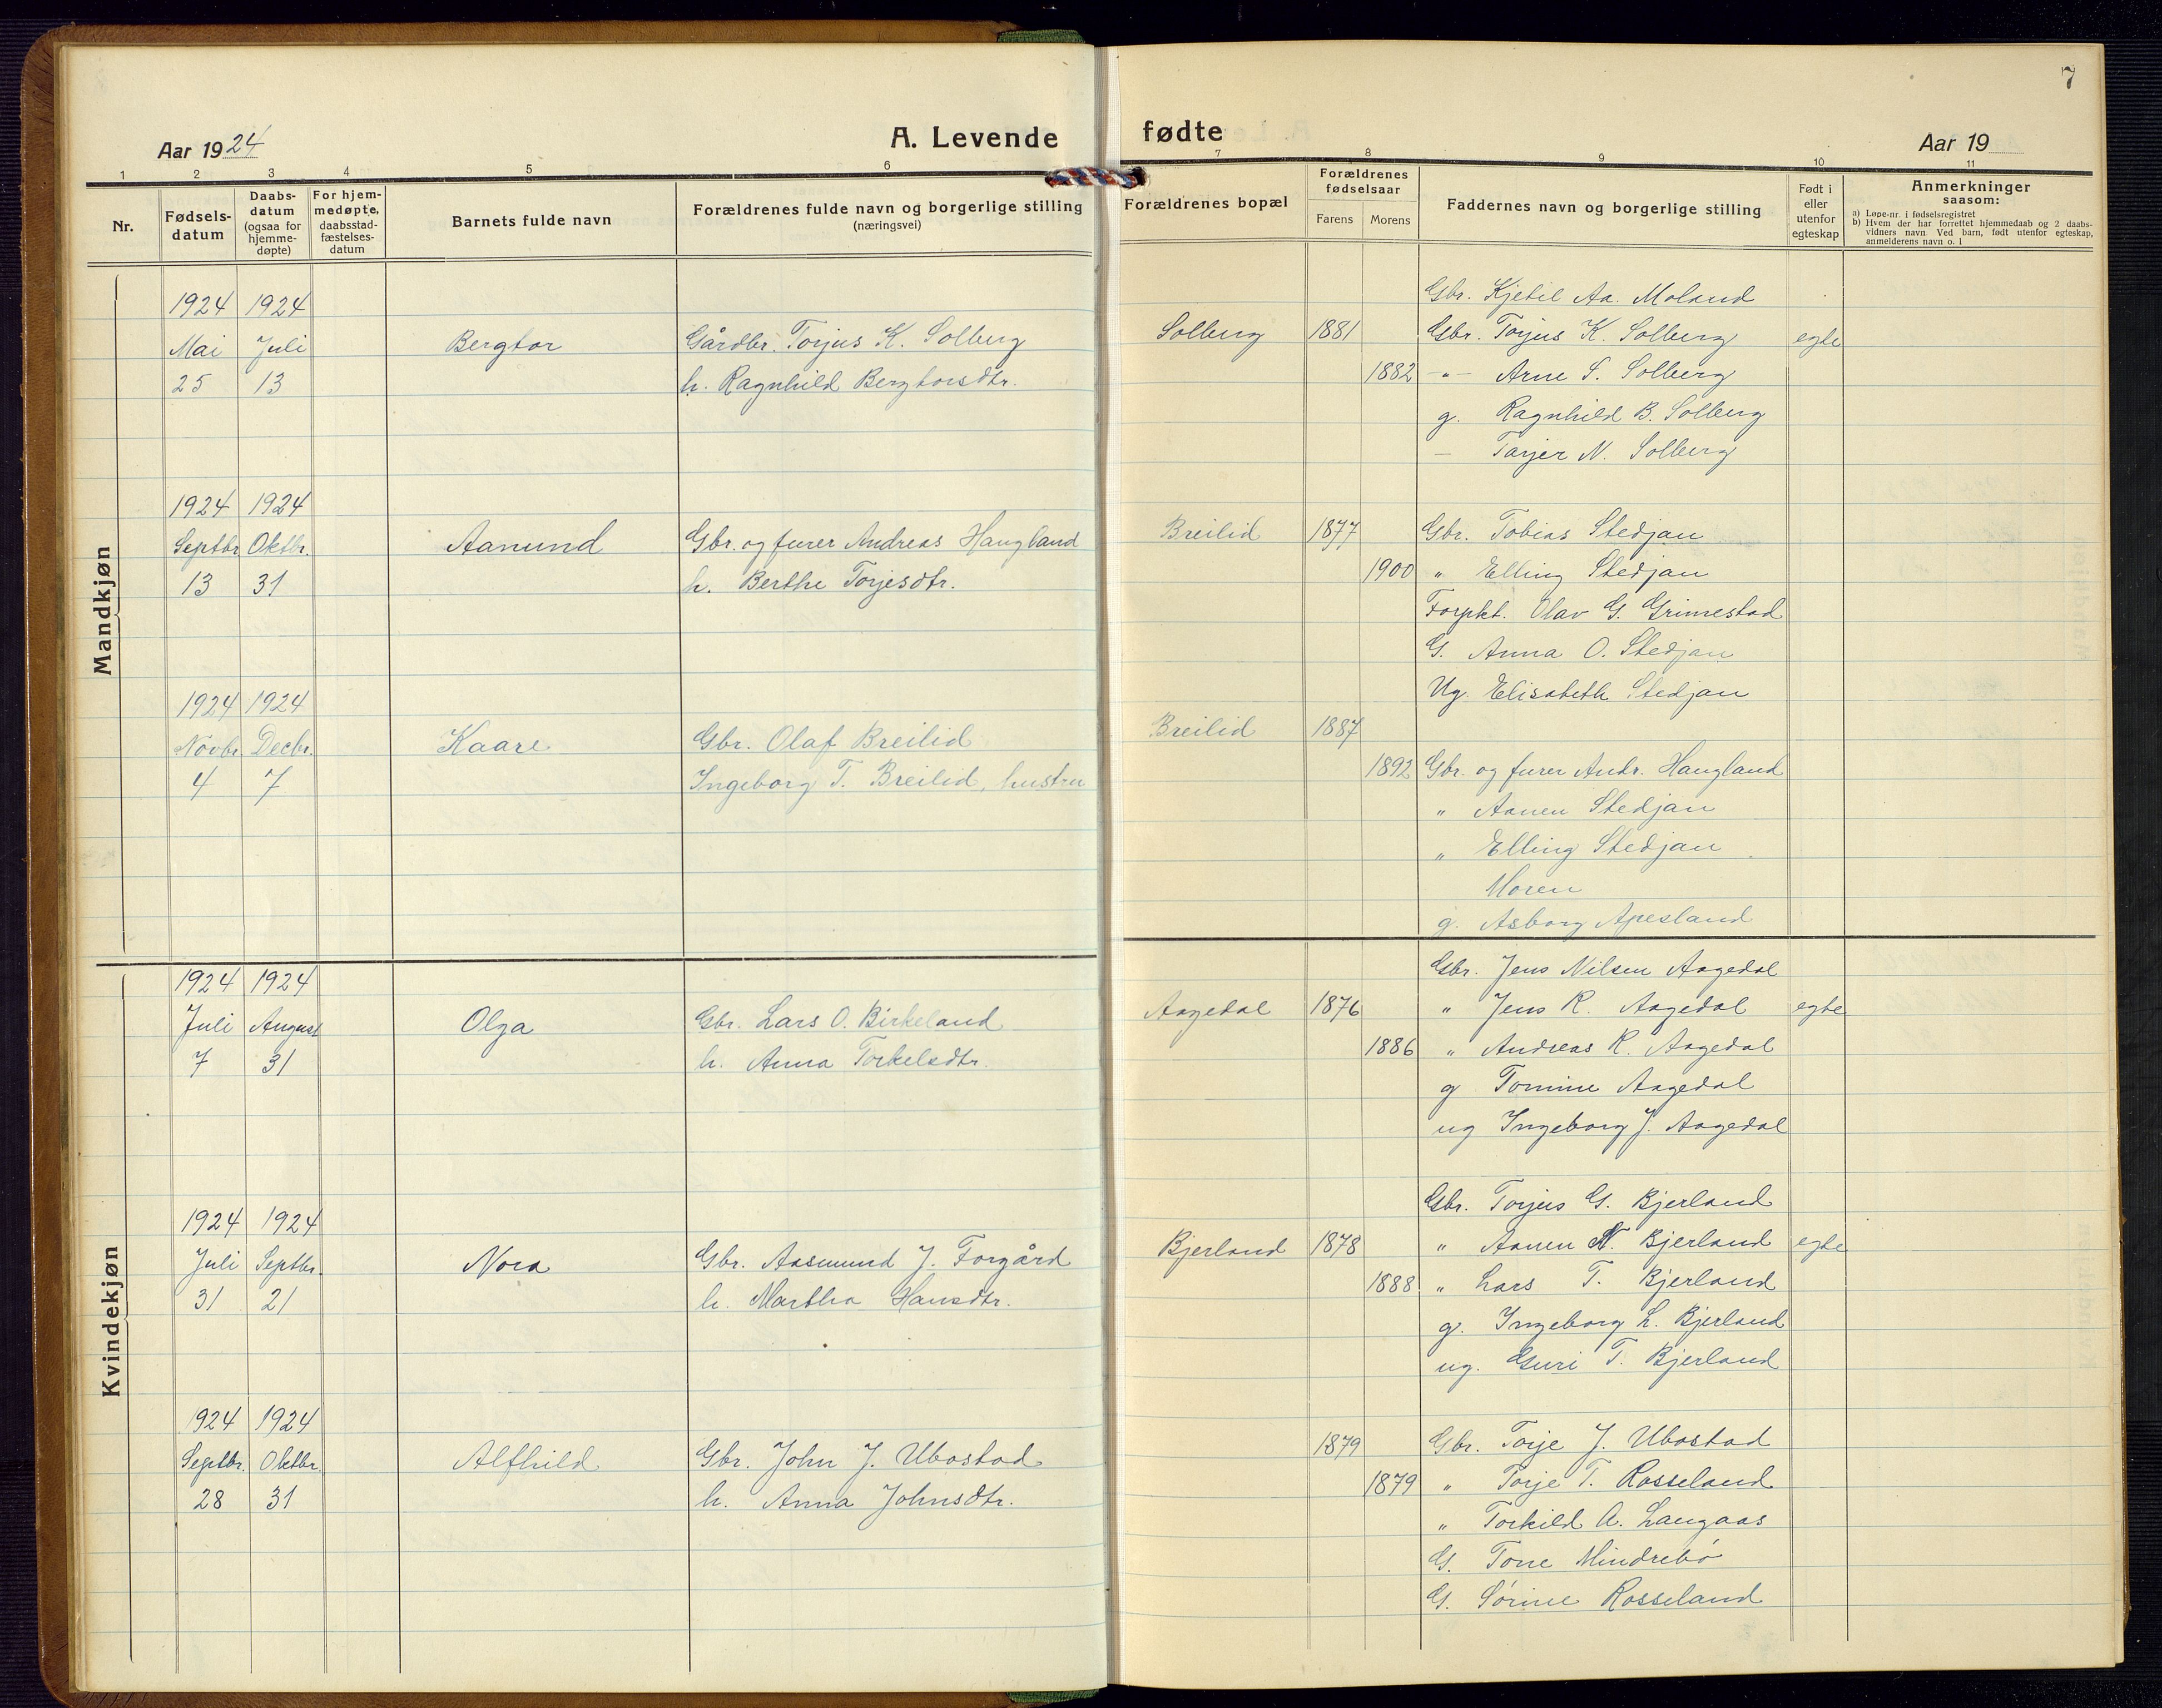 7
Aar 1924
A. Levende fødte
Aar 19
1 2 3 4 5 6 7 8 9 10 11
Nr.
Fødsels-
datum
Daabs-
datum
(ogsaa for
hjemme-
døpte)
For hjem-
medøpte,
daabsstad-
fæstelses-
datum
Barnets fulde navn
Forældrenes fulde navn og borgerlige stilling
(næringsvei)
Forældrenes bopæl
Forældrenes
fødselsaar
Farens Morens
Faddernes navn og borgerlige stilling
Født i
eller
utenfor
egteskap
Anmerkninger
saasom:
a) Løpe-nr. i fødselsregistret
b) Hvem der har forrettet hjemmedaab og 2 daabs-
vidners navn. Ved barn, født utenfor egteskap,
anmelderens navn o. l
Mandkjøn
1924 1924 Gbr. Kjetil Aa. Moland
Mai Juli Bergtor Gårdbr. Torjus K. Solberg Solberg 1881 Gbr. Torjus K. Solberg egte
25 13 h. Ragnhild Bergtorsdtr. 1882 -"- Arne S. Solberg
g. Ragnhild B. Solberg
— Tarjer N. Solberg
1924 1924
Septbr Oktbr. Aanund Gbr. og furer Andreas Haugland Breilid 1877 Gbr. Tobias Stedjan
13 31 h. Berthe Torjesdtr. 1900 " Elling Stedjan
Forpkt. Olav G. Grimestad
G. Anna O. Stedjan
Ug. Elisabeth Stedjan
1924 1924
Novbr. Decbr. Kaare Gbr. Olaf Breilid Breilid 1887
4 7 Ingeborg T. Breilid, hustru 1892 Gbr. og furer Andr. Haugland
" Aanen Stedjan
" Elling Stedjan
Moren
g. Asborg Apesland
Kvindekjøn
1924 1924 Gbr. Jens Nilsen Aagedal
Juli August Olga Gbr. Lars O. Birkeland Aagedal 1876 " Jens R. Aagedal egte
7 31 h. Anna Torkelsdtr. 1886 " Andreas R. Aagedal
g Tomine Aagedal
ug Ingeborg J. Aagedal
1924 1924 Gbr. Torjus G. Bjerland
Juli Septbr. Nora Gbr. Aasmund J. Forgård Bjerland 1878 " Aanen N. Bjerland egte
31 21 h. Martha Hansdtr. 1888 " Lars T. Bjerland
g. Ingeborg L. Bjerland
ug. Guri T. Bjerland
1924 1924
Septbr. Oktbr. Alfhild Gbr. John J. Ubostad 1879 Gbr. Torje J. Ubostad
28 31 h. Anna Johnsdtr. 1879 " Torje T. Rosseland
" Torkild A. Langaas
G. Tone Mindrebø
G. Sørine Rosseland